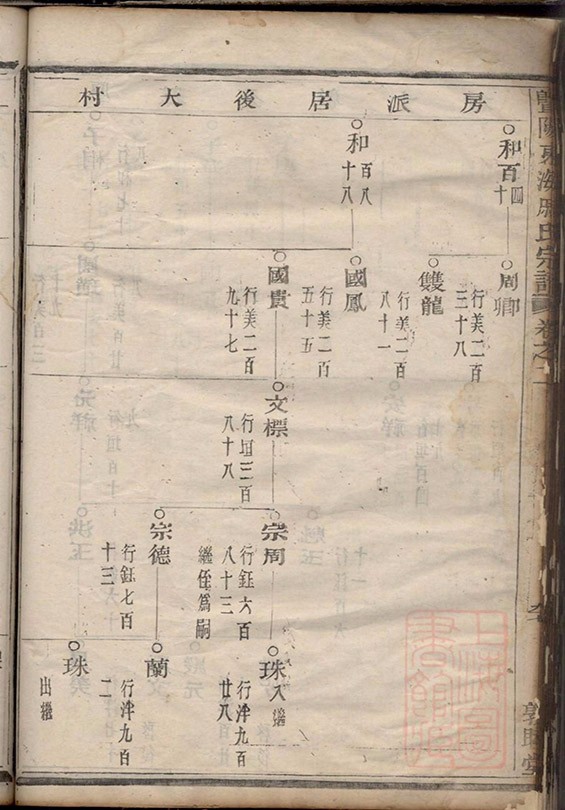 暨陽東海戚氏宗譜 卷之
房派居後大村
和百四十
和百八十八
周卿 行美二百三十八
雙龍 行美二百八十一
國鳳 行美二百五十五
國貴 行美二百九十七
文標 行垣三百八十八
宗周 行鈺六百八十三 繼侄爲嗣
宗德 行鈺七百十三
珠 入繼 行泮九百廿八
蘭 行泮九百二
珠 出繼
上海圖書館藏